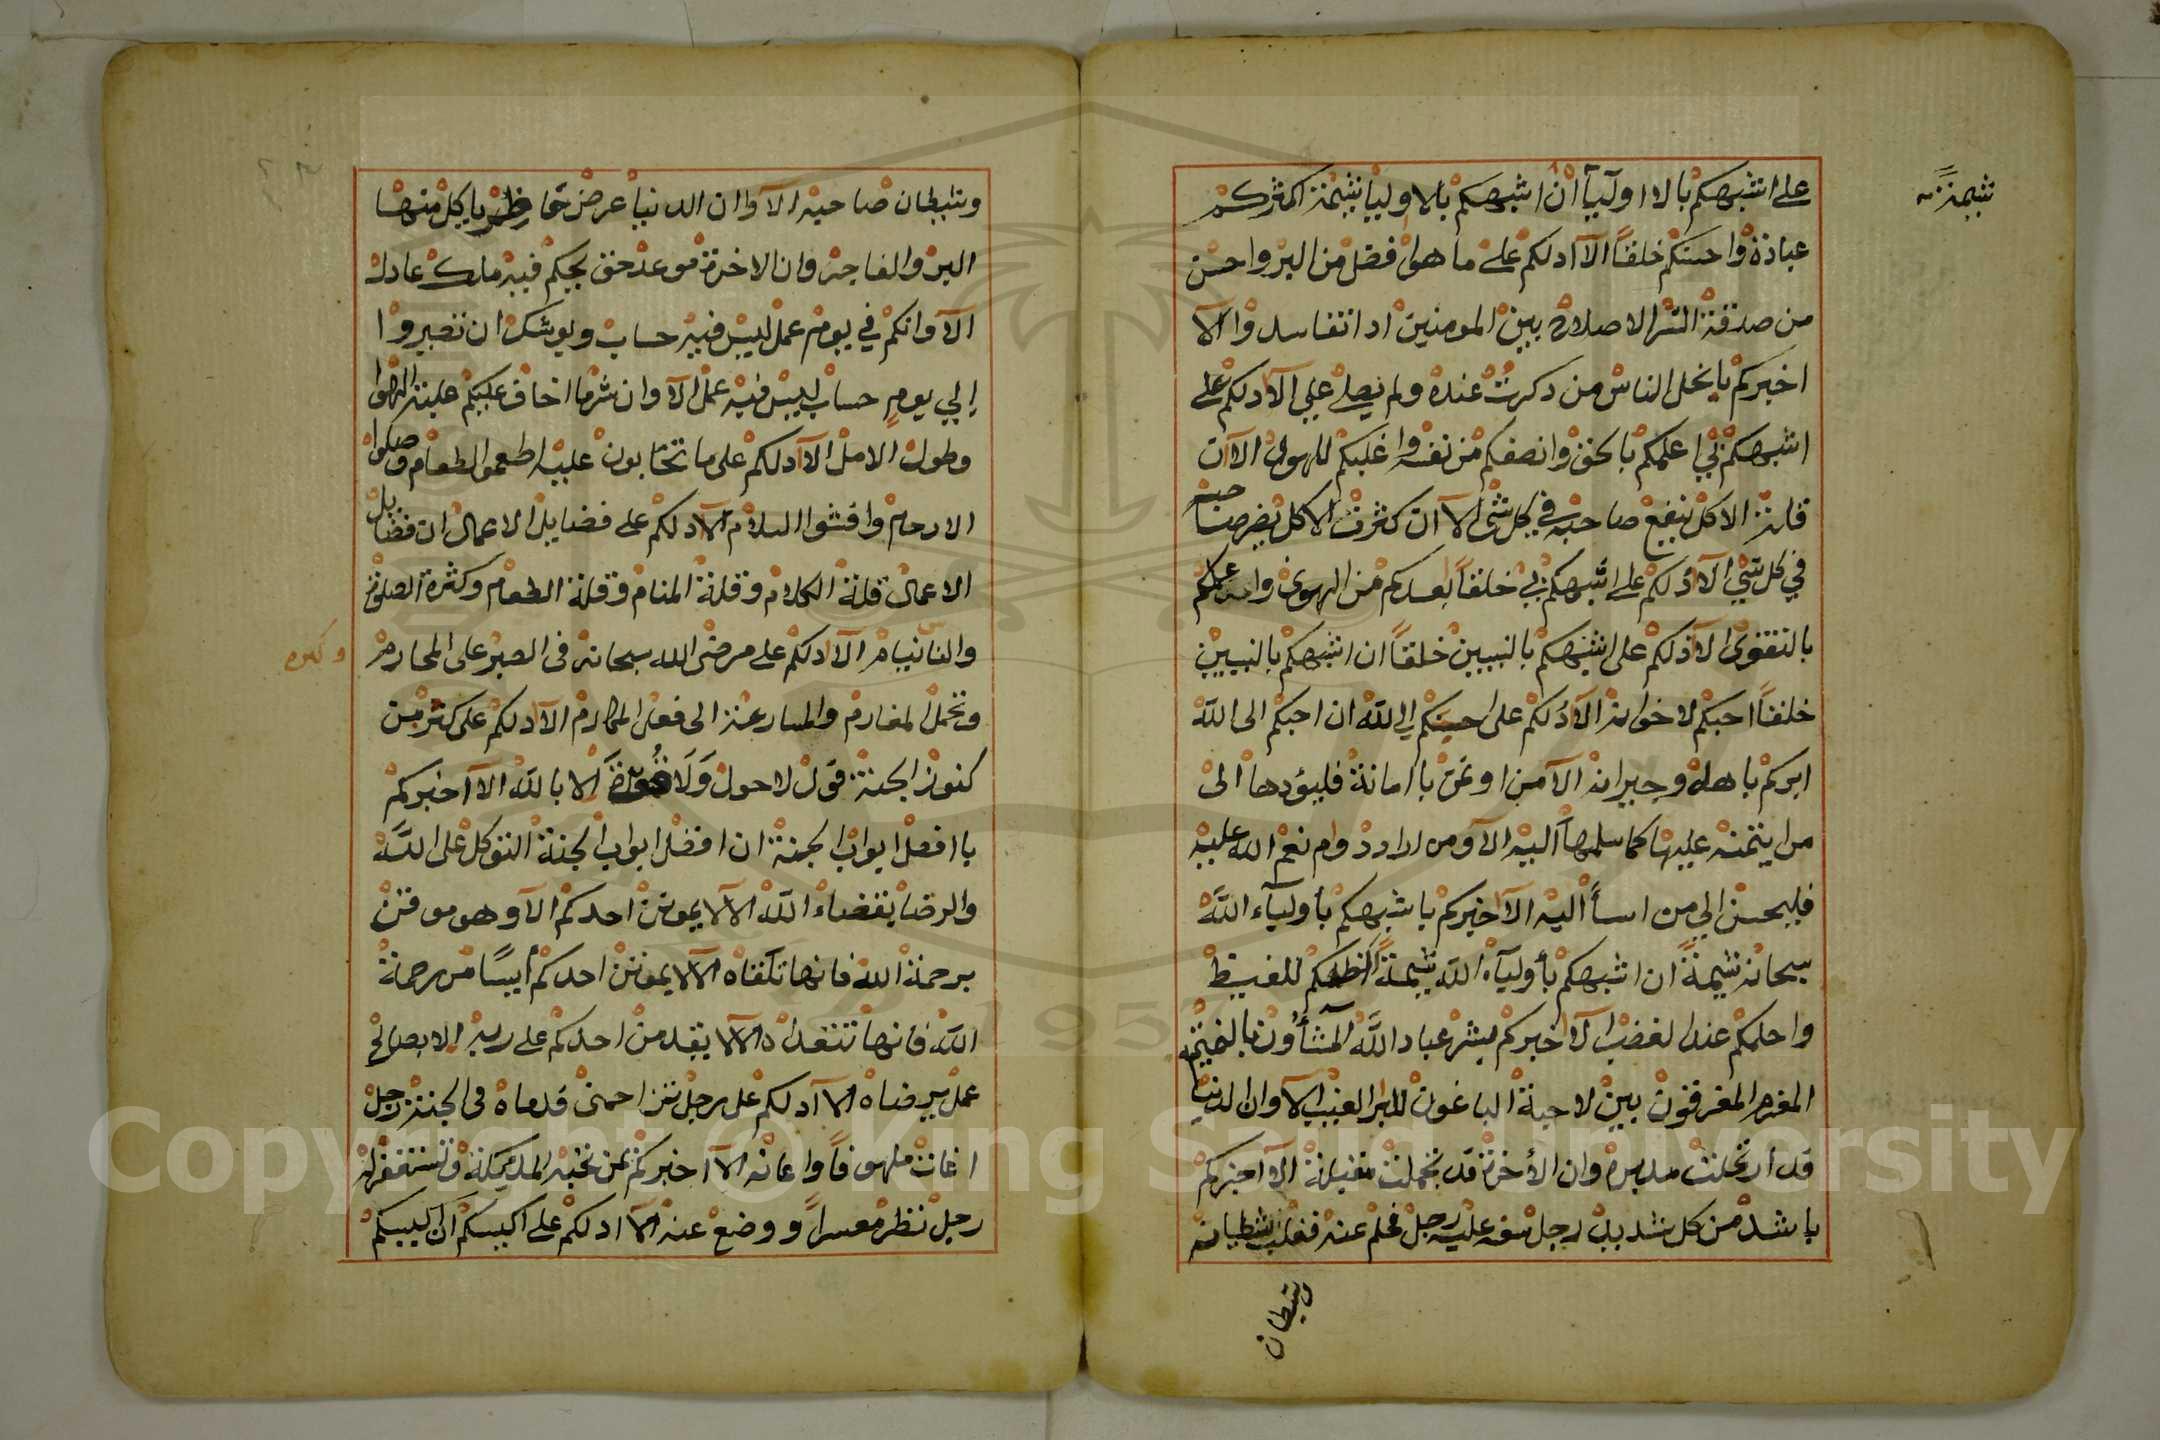 على اشبهكم بالاوليآ ان اشبهكم بالاوليآ شيمة اكثركم
شيمة
عبادة واحسنكم خلقاً الآ ادلكم على ما هو افضل من البر واحسن
من صدقة السر الاصلاح بين المومنين ادا تفاسدوا الآ
اخبركم بابخل الناس من دكرت عنده ولم يصلي علي الآ ادلكم على
اشبهكم بي اعلمكم بالحق وانصفكم من نفسه واغلبكم للهوى الآ ان
قلة الاكل ينفع صاحبه في كل شي الآ ان كثرت الاكل يضر صاحبه
في كل شي الآ ادلكم على اشبهكم بي خلقاً ابعدكم من الهوى واعملكم
بالتقوى الآ ادلكم على اشبهكم بالنبيين خلقاً ان اشبهكم بالنبيين
خلقاً احبكم لاخوانه الآ ادلكم على احبكم الى الله ان احبكم الى الله
ابركم باهله وجيرانه الآ من اوتمن باامانة فليؤدها الى
من ايتمنه عليها كما سلمها اليه الآ ومن اراد دوام نعم الله عليه
فليحسن الي من اسأ اليه الآ اخبركم باشبهكم بأوليآء الله
سبحانه شيمةً ان اشبهكم بأوليآء الله شيمةً اكظمكم للغيظ
واحلمكم عند الغضب الآ اخبركم بشر عباد الله المشآؤن بالنميمة
المغرم المفرقون بين الاحبة الباغون للبرا العيب الآ وان الدنيا
قد ارتحلت مدبرة وان الأخرة قد تجملت مقبلة الآ اخبركم
باشد من كل شديد رجل سفه عليه رجل فحلم عنه فغلب شيطانه
وشيطان
وشيطان صاحبه الآ وان الدنيا عرض حاضر ياكل منها
البر والفاجر وان الاخرة موعد حق يحكم فيه ملك عادل
الآ وانكم في يوم عمل ليس فيه حساب ويوشك ان تصيروا
إلي يوم حساب ليس فيه عمل الآ وان شر ما اخاف عليكم غلبة الهوا
وطول الامل الآ ادلكم على ما تحابون عليه اطعموا الطعام وصلوا
الارحام وافشوا السلام الآ ادلكم على فضايل الاعمال ان فضايل
الاعمال قلة الكلام وقلة المنام وقلة الطعام وكثرة الصلوة
والناس نيام الآ ادلكم على مرضى الله سبحانه في الصبر على المحارم
وتحمل المغارم والمسارعة الى فعل المكارم الآ ادلكم على كثر من
كنوز الجنة قول لاحول وَلَا قوة الا بالله الآ اخبركم
باافضل ابواب الجنة ان افضل ابواب الجنة التوكل على الله
والرضا بقضاء الله الآ لا يموتن احدكم الآ وهو موقن
برحمة الله فانها تلقاه الآ لا يموتن احدكم أيسًا من رحمة
الله فانها تنقذه الآ لا يقدمن احدكم على ربه الا بصالح
عمل يرضاه الآ ادلكم على رجل تزاحمني قدماه في الجنة رجل
اغاث ملهوفاً واعانه الآ اخبركم بمن تحبه الملايكة وتستغفر له
رجل نظر معسراً ووضع عنه الآ ادلكم على اكيسكم ان اكيسكم